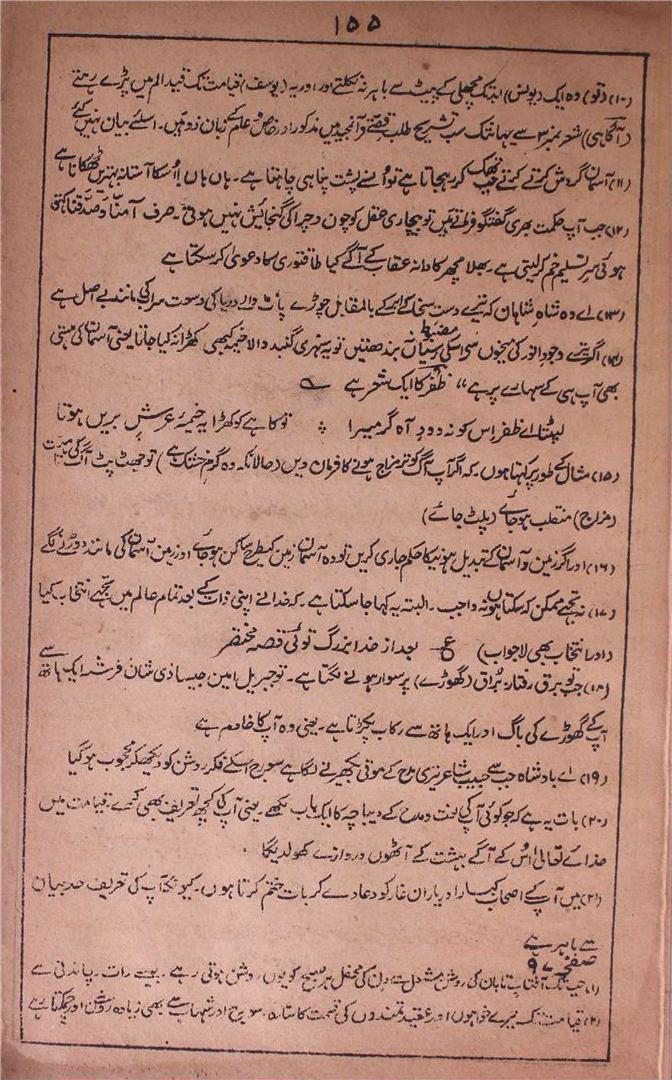 ۱۵۵
(۱۰) (تو) وہ ایک (یونس) ابتک مچھلی کے پیٹ سے باہر نہ نکلتے اور، اور یہ (یوسف) قیامت تک قید الم میں پڑے رہتے
(آگاہی) شعر نمبر ۳ سے یہانتک سب تشریح طلب قصے قرآنجید میں مذکور اور خاص و عام کے زبان زد ہیں۔ اسلئے بیان نہیں کئے
(۱۱) آسمان گردش کرتے کرتے جب تھک کر رہجاتا ہے تو اُسے پشت پناہی چاہتا ہے۔ ہاں ہاں! اُسکا آستانہ بہترین ٹھکانا ہے
(۱۲) جب آپ حکمت بھری گفتگو فرماتے ہیں تو بیچاری عقل کو چون و چرا کی گنجائش نہیں ہوتی۔ صرف آمنّا و صدّقنا کہتی
ہوئی سر تسلیم خم کر لیتی ہے۔ بھلا مچھر کا دانہ عقاب کے آگے کیا طاقتوری کا دعویٰ کر سکتا ہے
(۱۳) اے وہ شاہِ شاہان کہ تیرے دست سخا کے ابر کے بالمقابل چوڑے پاٹ والے دریا کی وسعت سراب کی مانند بے اصل ہے
(۱۴) اگر تیرے وجودِ انور کی میخوں سی اسکی مضبوط رسیاں نہ بندھتیں تو یہ سنہری گنبد والا خیمہ کبھی کھڑا نہ کیا جاتا یعنی آسمان کی ہستی
بھی آپ ہی کے سہارے پر ہے" ظفر کا ایک شعر ہے
لپٹتا اے ظفر اس کو نہ دودِ آہ گر میرا ؞ تو کاہے کو کھڑا یہ خیمۂ عرشِ بریں ہوتا
(۱۵) مثال کے طور پر کہتا ہوں کہ اگر آپ آگ کو تر مزاج ہونے کا فرمان دیں (حالانکہ وہ گرم خشک ہے) تو جھٹ پٹ آگ کی ہیئت
(مزاج) منقلب ہو جائے (پلٹ جائے)
(۱۶) اور اگر زمین و آسمان کے تبدیل ہونیکا حکم جاری کریں تو وہ آسمان زمین کیطرح ساکن ہو جائے اور زمین آسمان کی مانند دوڑنے لگے
(۱۷) نہ تجھے ممکن کہہ سکتا ہوں نہ واجب۔ البتہ یہ کہا جا سکتا ہے۔ کہ خدا نے اپنی ذات کے بعد تمام عالم میں تجھے انتخاب کیا
(اور انتخاب بھی لاجواب) ع بعد از خدا بزرگ توئی قصہ مختصر
(۱۸) جب تو برق رفتار بُراق (گھوڑے) پر سوار ہونے لگتا ہے۔ تو جبریل امین جیسا ذی شان فرشتہ ایک ہاتھ سے
آپ کے گھوڑے کی باگ اور ایک ہاتھ سے رکاب پکڑتا ہے۔ یعنی وہ آپ کا خادم ہے
(۱۹) اے بادشاہ جب سے حبیب شاعر تیری مدح کے موتی بکھیرنے لگا ہے سورج اسکے فکر روشن کو دیکھکر محجوب ہو گیا
(۲۰) بات یہ ہے کہ جو کوئی آپکی نعت و مدح کے دیباچہ کا ایک باب لکھے یعنی آپ کی کچھ تعریف بھی کرے۔ قیامت میں
خدائے تعالیٰ اُس کے آگے بہشت کے آٹھوں دروازے کھولدیگا
(۲۱) میں آپ کے اصحاب کبار اور یاران غار کو دعا دے کر بات ختم کرتا ہوں۔ کیونکہ آپ کی تعریف حد بیان
سے باہر ہے
صفحہ ۹۷
(۱) جب تک آفتاب تاباں کی روشن مشعل سے دن کی محفل ہر صبح کو یوں روشن ہوتی رہے۔ جیسے رات۔ چاندنی سے
(۲) قیامت تک تیرے خواہوں اور عقیدتمندوں کی قسمت کا ستارہ۔ سورج اور شہاب سے بھی زیادہ روشن اور چمکتا رہے